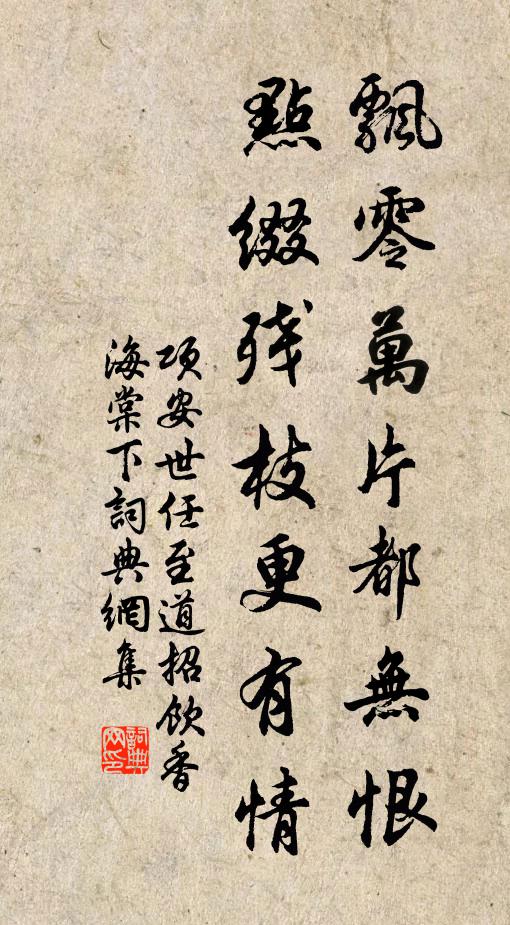 飄零萬片都無恨
點綴残枝更有情
項安世任至道招飲香
海棠下詞典網集
詞典网印